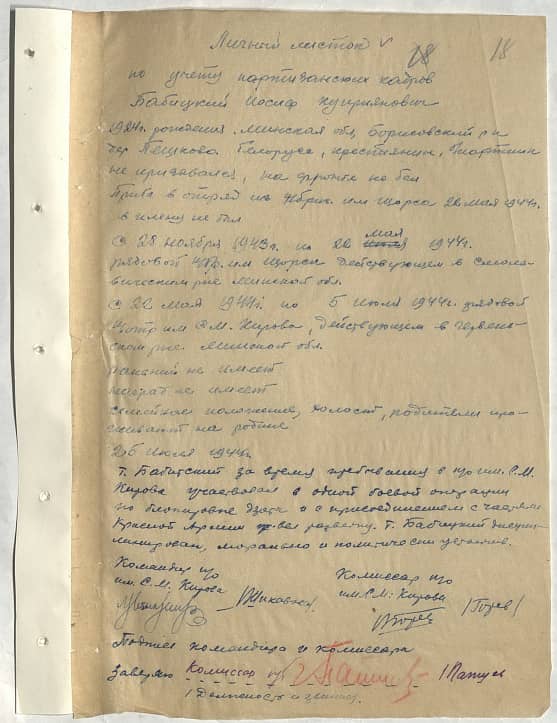 Личный листок 18 18
по учету партизанских кадров
Бабицкий Иосиф Куприянович
1924г. рождения, Минская обл, Борисовский р-н
дер Пешково. Белорусс, крестьянин,
не призывался, на фронте не был
Прибыл в отряд из им Щорса 22 мая 1944г.
в плену не был
С 28 ноября 1943г. по 22 мая 1944г.
рядовой им Щорса действующем в Смоле-
вичском р-не Минской обл.
С 22 мая 1944г. по 5 июля 1944г. рядовой
им С.М. Кирова, действующем в Червень-
ском р-не. Минской обл.
ранений не имеет
наград не имеет
семейное положение, холост, родители про-
живают на родине
25 июля 1944г.
т. Бабицкий за время пребывания в п/о им. С.М.
Кирова участвовал в одной боевой операции
по блокировке и с присоединением с частями
Красной Армии разведку. т. Бабицкий дисцип-
линирован, морально и политически устойчив.
Командир п/о
им. С.М. Кирова
Комиссар п/о
им. С.М. Кирова
Подпись командира и комиссара
заверяю Комиссар
/Должность и звание/